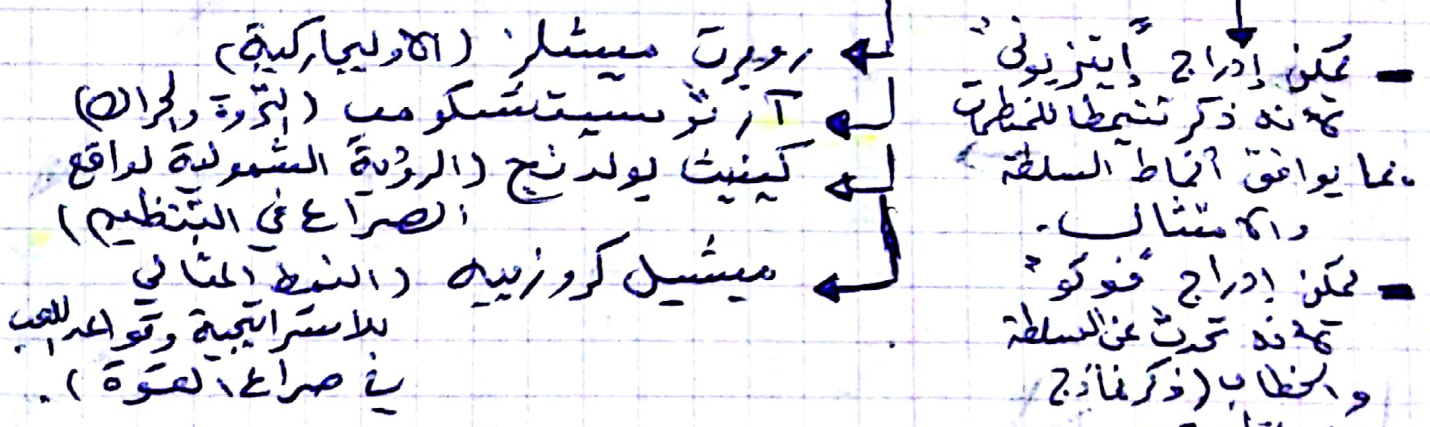 - يمكن إدراج "إيتزيوني"
لأنه ذكر تنميطا للمنظمات
بما يوافق أنماط السلطة
والامتثال.
- يمكن إدراج "فوكو"
لأنه تحدث عن السلطة
والخطاب (ذكر نماذج
روبرت ميشلز (الأوليجاركية)
آرثر ستنشكومب (الثروة والحراك)
كينيث بولدنج (الرؤية الشمولية لواقع
الصراع في التنظيم)
ميشيل كروزييه (النمط المثالي
للاستراتيجية وقواعد اللعب
في صراع القوة).